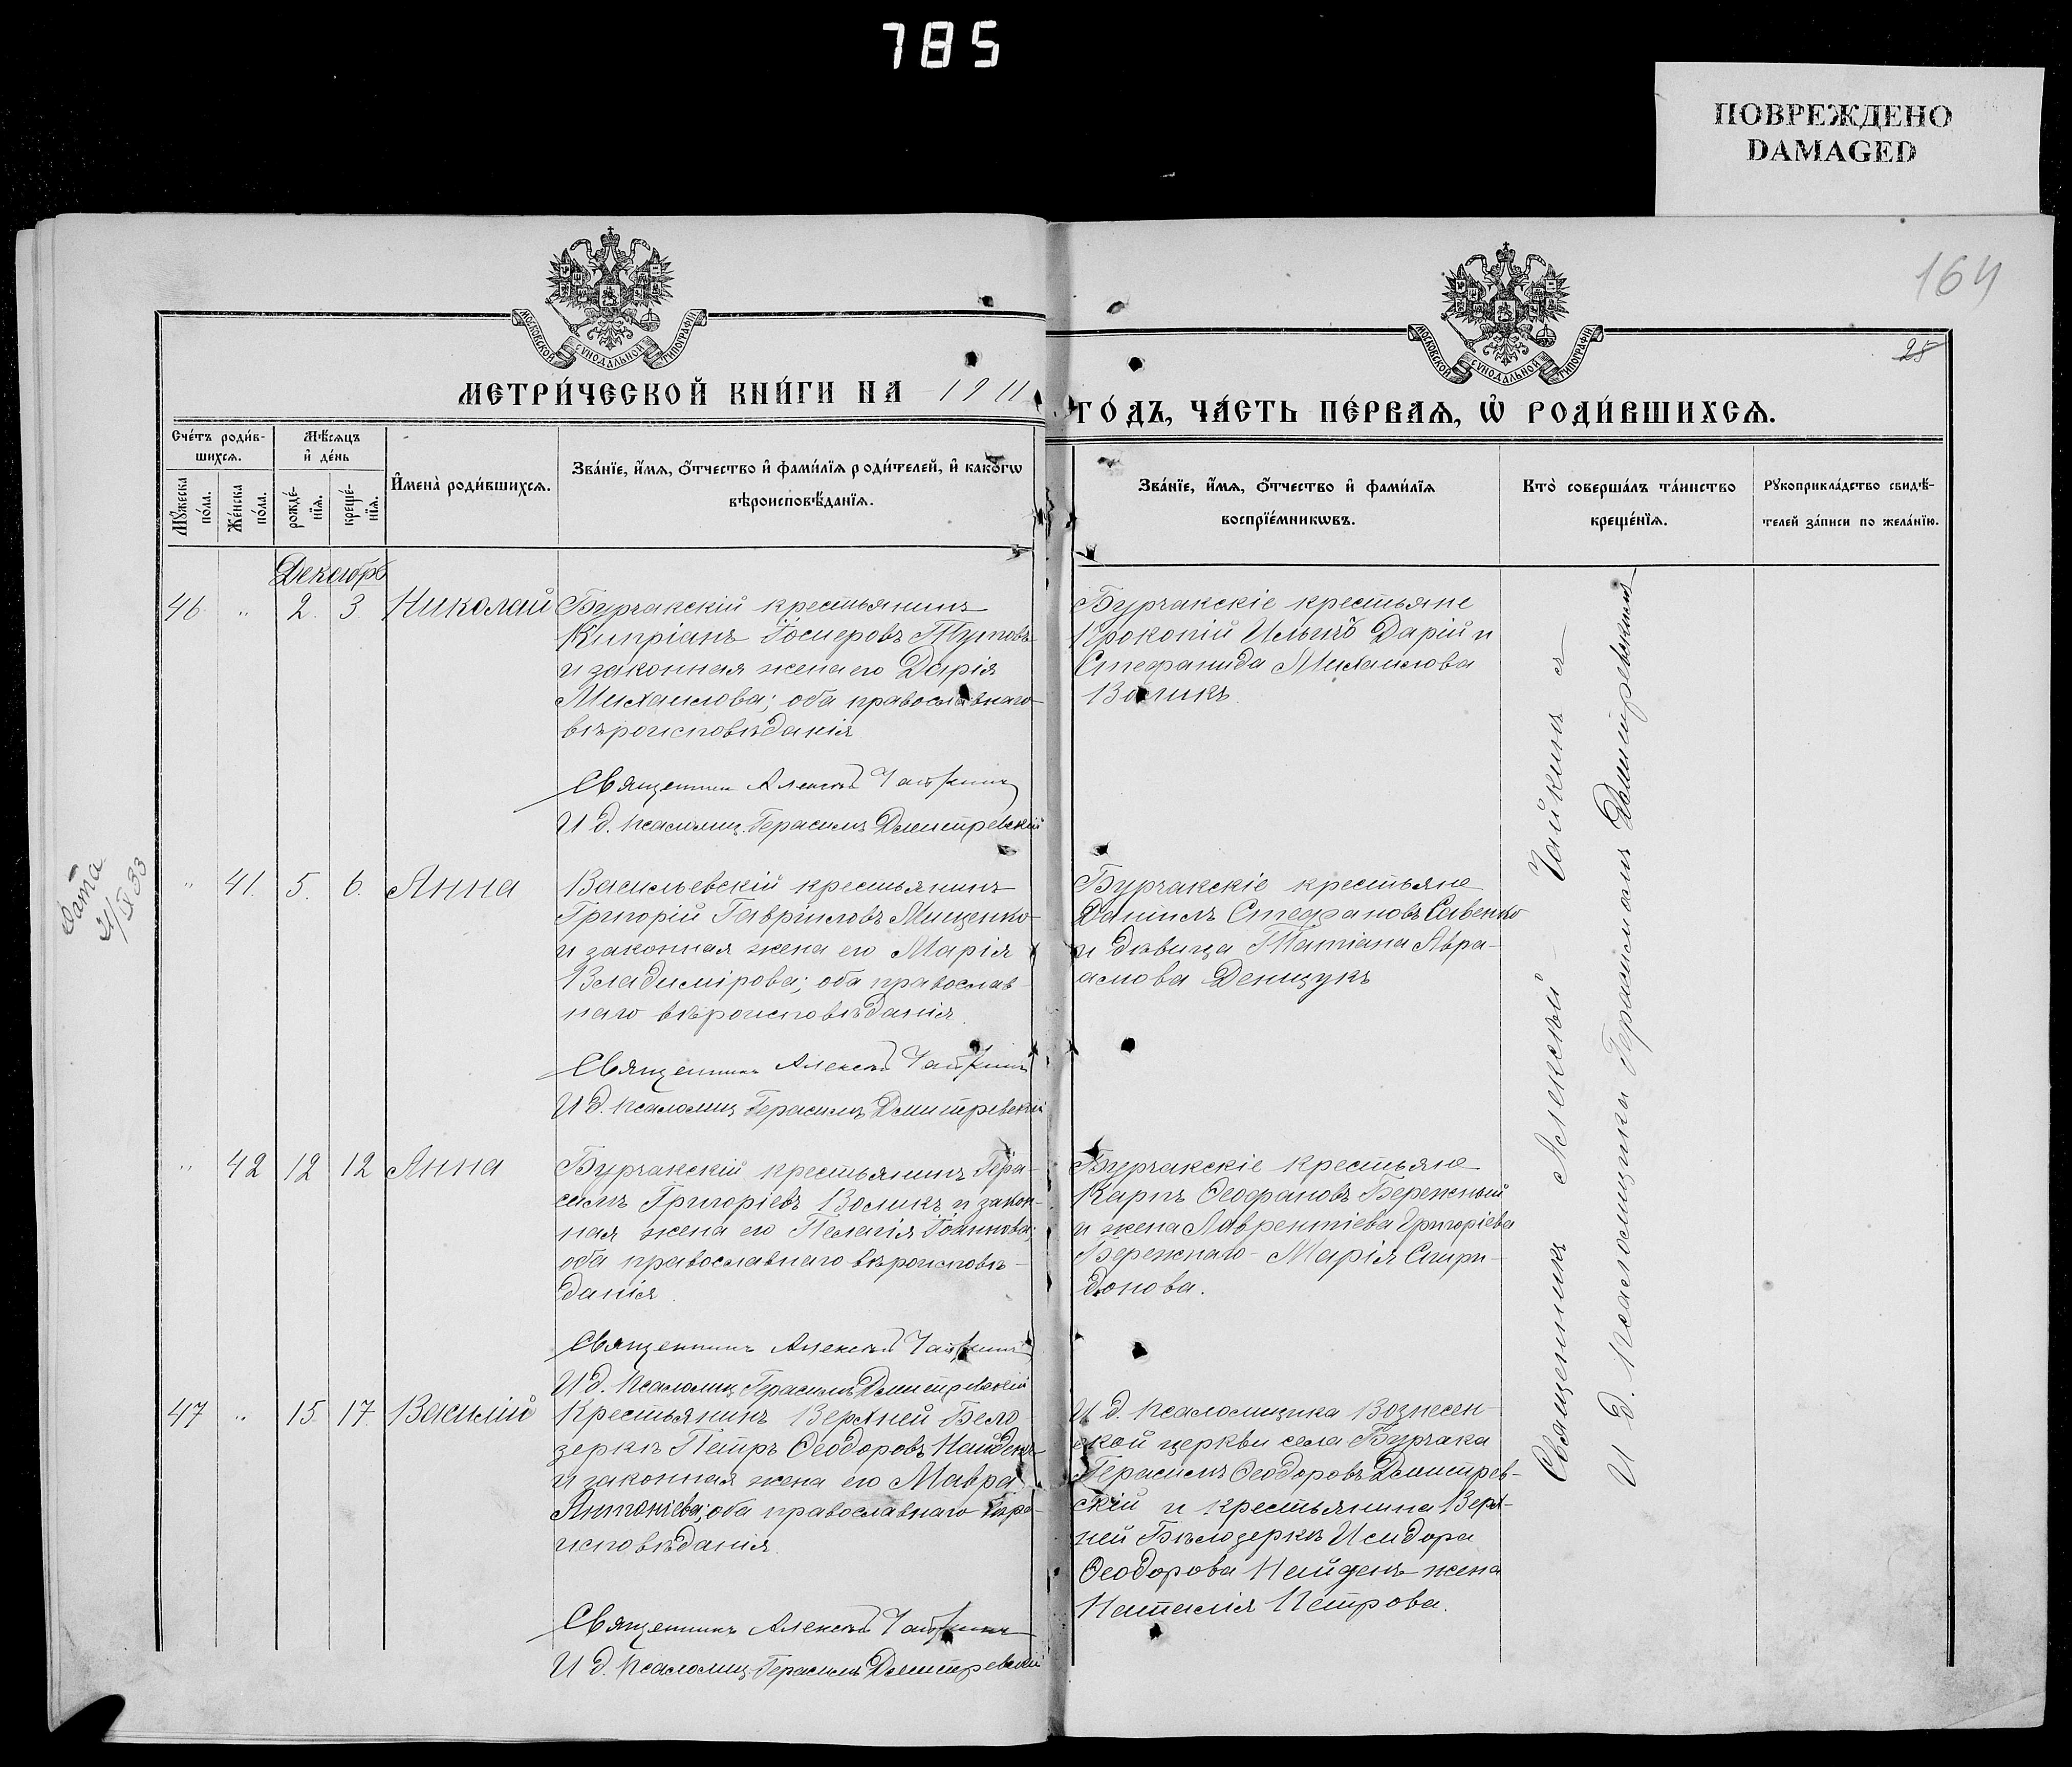 785
ПОВРЕЖДЕНО
DAMAGED
164
25
МОСКОВСКОЙ СѴНОДАЛЬНОЙ ТИПОГРАФІИ
МОСКОВСКОЙ СѴНОДАЛЬНОЙ ТИПОГРАФІИ
МЕТРИ́ЧЕСКОЙ КНИ́ГИ НА 1911
ГО́ДЪ, ЧА́СТЬ ПЕ́РВАѦ, Ѽ РОДИ́ВШИХСѦ.
Сче́тъ роди́в-
шихсѧ.
Мꙋ́жеска по́ла.
Же́нска по́ла.
Мѣ́сѧцъ
и҆ де́нь
рожде́-
нїѧ.
креще́-
нїѧ.
И҆мена̀ роди́вшихсѧ.
Зва́нїе, и҆́мѧ, ѻ҆́тчество и҆ фами́лїѧ роди́телей, и҆ како́гѡ
вѣроисповѣ́данїѧ.
Зва́нїе, и҆́мѧ, ѻ҆́тчество и҆ фами́лїѧ
воспрїе́мникѡвъ.
Кто̀ соверша́лъ та́инство
креще́нїѧ.
Рꙋкоприкла́дство свидѣ́-
телей за́писи по жела́нїю.
Декабрь
46 " 2. 3. Николай
Бурчакскій крестьянинъ
Кипріанъ
и законная жена его Дарія
Михаилова; оба православнаго
вѣроисповѣданія
Священникъ Алексѣй Чайкинъ
И д. псаломщ. Герасимъ Дмитревскій
Бурчакскіе крестьяне
Прокопій Ильинъ Дарій и
Стефанида Михаилова
Воликъ.
" 41. 5. 6. Анна
Васильевскій крестьянинъ
Григорій Гавриловъ Мищенко
и законная жена его Марія
Владимірова; оба православ
наго вѣроисповѣданія.
Священникъ Алексѣй Чайкинъ
И д. псаломщ Герасимъ Дмитревскій
Бурчакскіе крестьяне
Даніилъ Стефановъ Савенко
и дѣвица Татіана Авра-
амова Денщукъ
Дата
21/IX 33
" 42 12 12 Анна
Бурчакскій крестьянинъ Гера-
симъ Григоріевъ Воликъ и закон-
ная жена его Пелагія Іоаннова;
оба православнаго вѣроисповѣ-
данія.
Священникъ Алексѣй Чайкинъ
И д. псаломщ Герасимъ Дмитревскій
Бурчакскіе крестьяне
Карпъ Ѳеофановъ Бережный
и жена Лаврентіева Григоріева
Бережнаго - Марія Спири-
донова.
47 " 15. 17. Василій
Крестьянинъ Верхней Бело
зерки Петръ Ѳеодоровъ Найденъ
и законная жена его Мавра
Антоніева; оба православнаго вѣро-
исповѣданія.
Священникъ Алексѣй Чайкинъ
И д. псаломщ Герасимъ Дмитревскій
И д. псаломщика Вознесен-
ской церкви села Бурчака
Герасимъ Ѳеодоровъ Дмитрев-
скій и крестьянина Верх-
ней Бѣлозерки Исидора
Ѳеодорова Найденъ жена
Наталія Петрова.
Священникъ Алексѣй Чайкинъ
И д. псаломщика Герасимъ Дмитревскій